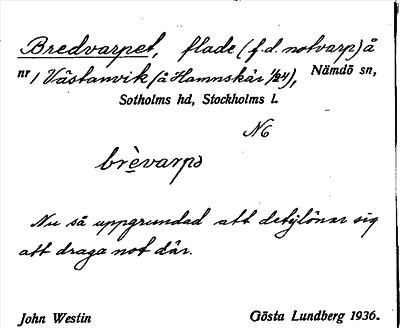 Bredvarpet, flade (f.d. notvarp) å
nr 1 Västanvik (å Hamnskär 1/24), Nämdö sn,
Sotholms hd, Stockholms l.
N6
brèvarpə
Nu så uppgrundad att det ej lönar sig
att draga not där.
John Westin Gösta Lundberg 1936.